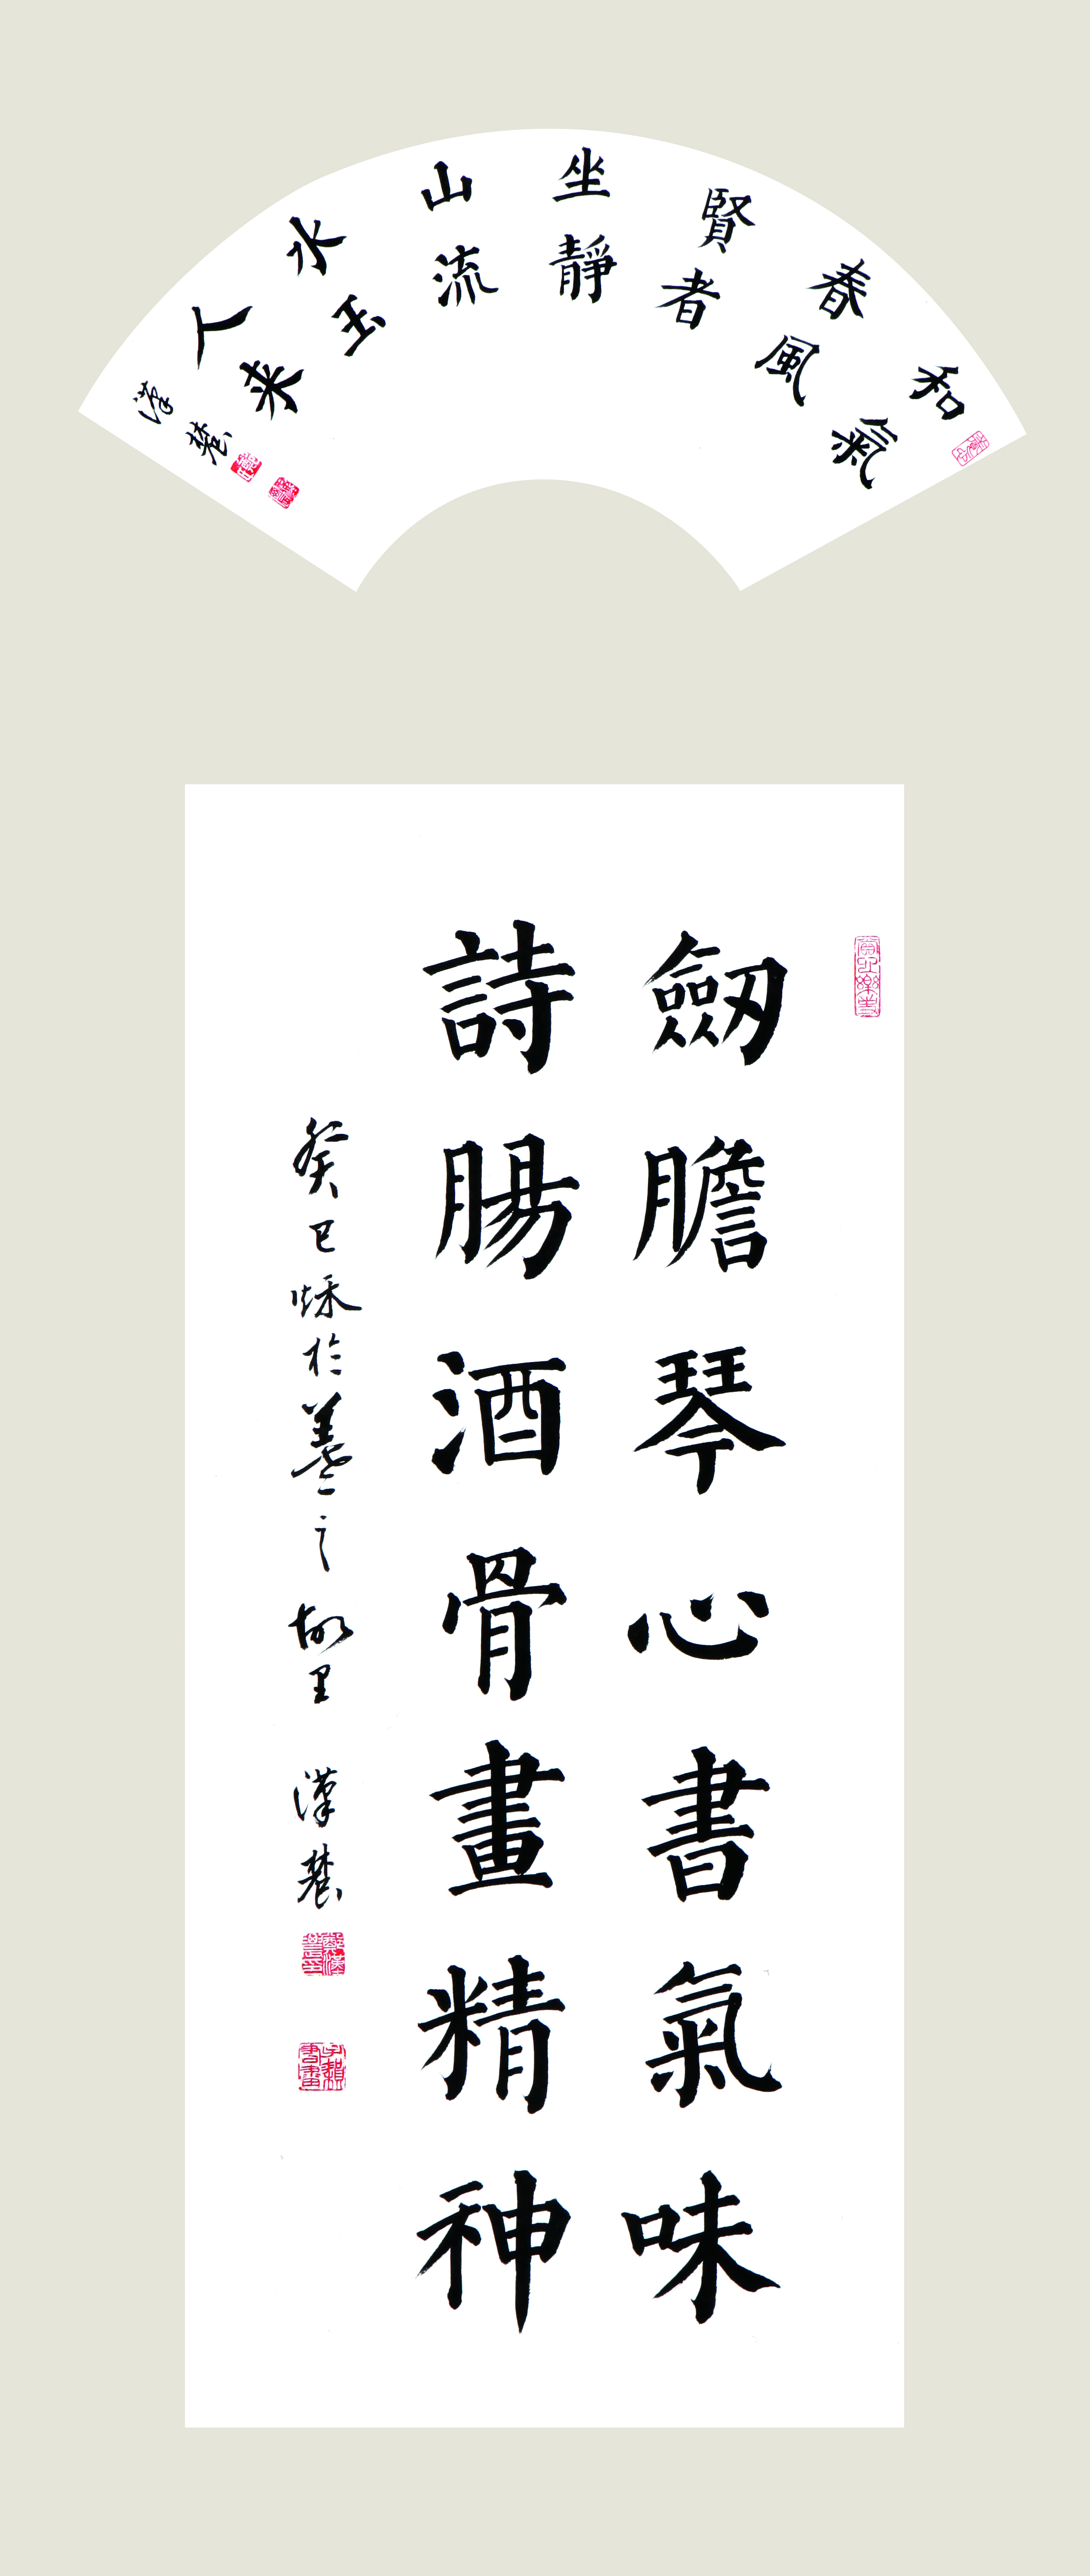 和氣
春風
賢者
坐靜
山流
水玉
人来
漢辳
劒膽琴心書氣味
詩腸酒骨畫精神
癸巳秌於羲之故里 漢辳